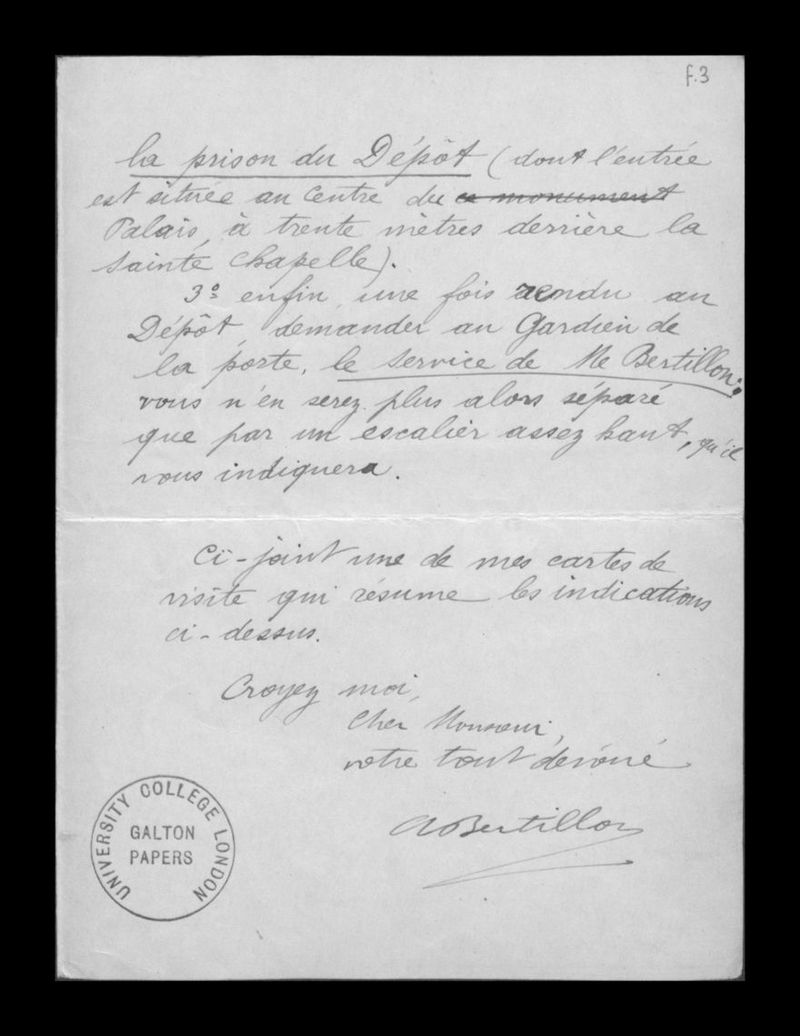 f.3
la prison du Dépôt (dont l'entrée
est située au centre du ce monument
Palais, à trente mètres derrière la
Sainte Chapelle).
3º enfin, une fois rendu au
Dépôt, demander au Gardien de
la porte, le service de Mr Bertillon;
vous n'en serez plus alors séparé
que par un escalier assez haut, qu'il
vous indiquera.
Ci-joint une de mes cartes de
visite qui résume les indications
ci-dessus.
Croyez moi,
Cher Monsieur,
votre tout dévoué
ABertillon
UNIVERSITY COLLEGE LONDON
GALTON
PAPERS